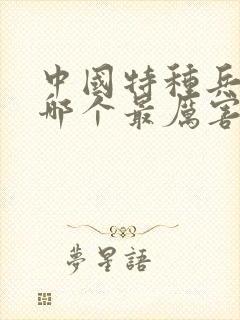 中國特種兵
哪个最厲害
夢星語